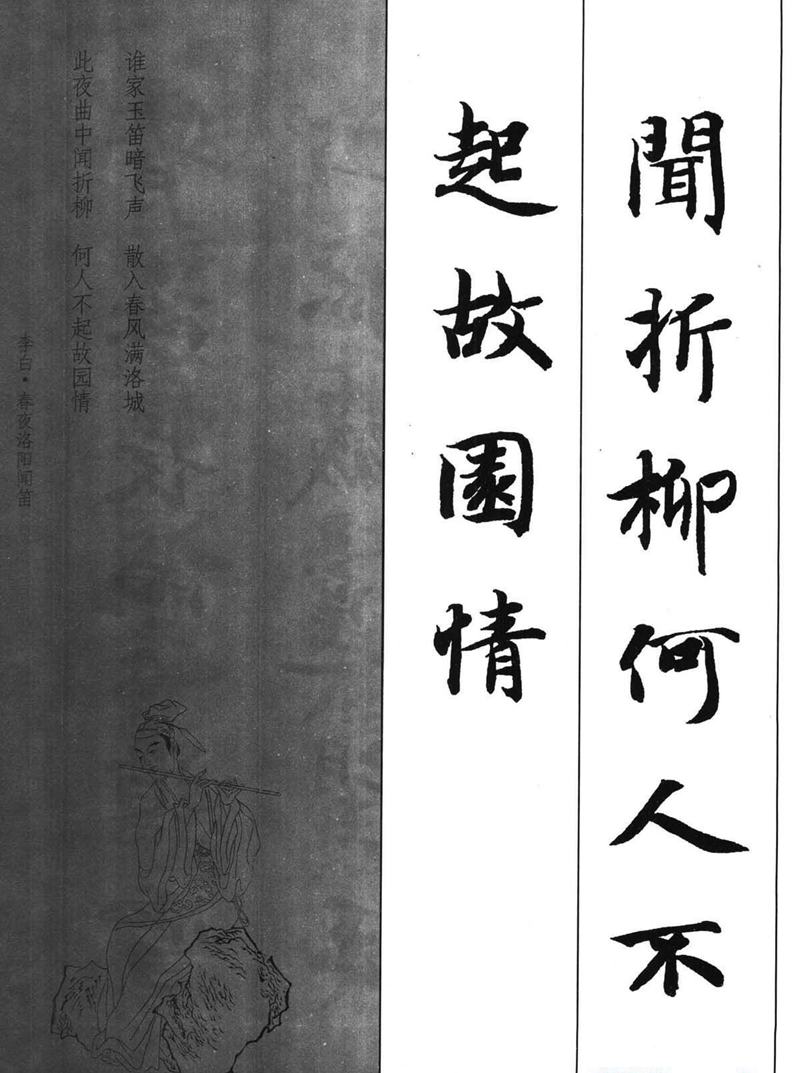 聞折柳何人不
起故園情
谁家玉笛暗飞声 散入春风满洛城
此夜曲中闻折柳 何人不起故园情
李白·春夜洛阳闻笛